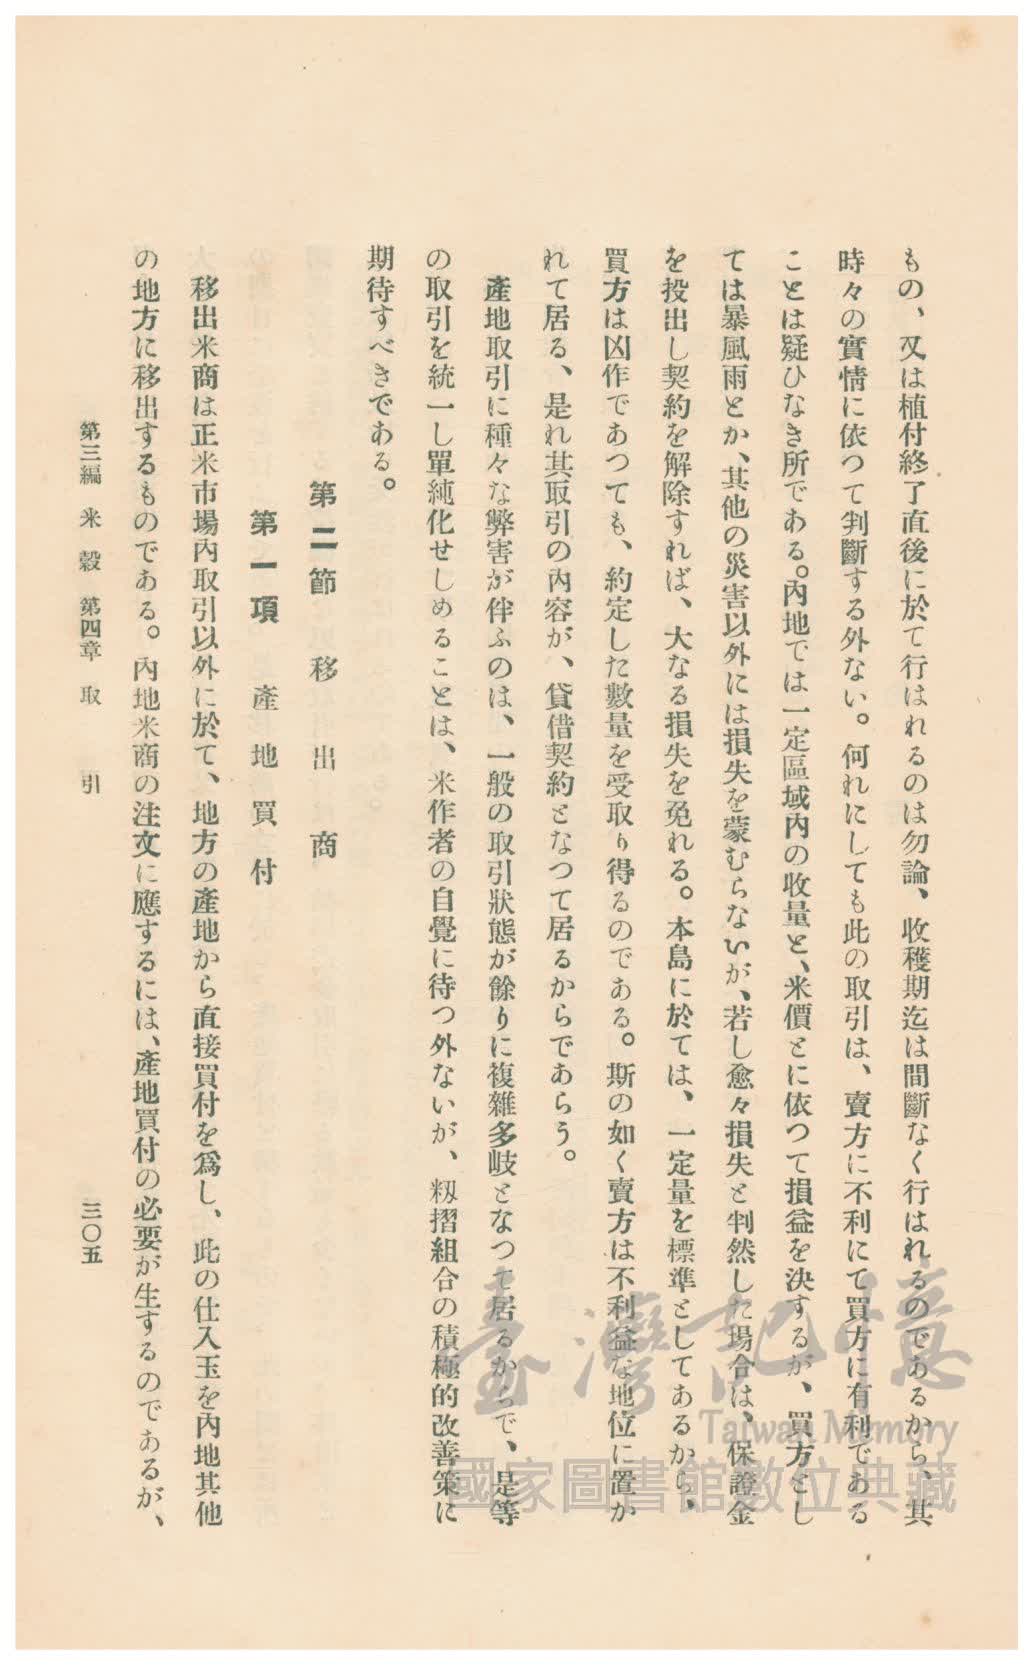 もの、又は植付終了直後に於て行はれるのは勿論、收穫期迄は間斷なく行はれるのであるから、其
時々の實情に依つて判斷する外ない。何れにしても此の取引は、賣方に不利にて買方に有利である
ことは疑ひなき所である。內地では一定區域內の收量と、米價とに依つて損益を決するが、買方とし
ては暴風雨とか、其他の災害以外には損失を蒙むらないが、若し愈々損失と判然した場合は、保證金
を投出し契約を解除すれば、大なる損失を免れる。本島に於ては、一定量を標準としてあるから、
買方は凶作であつても、約定した數量を受取り得るのである。斯の如く賣方は不利益な地位に置か
れて居る、是れ其取引の內容が、貸借契約となつて居るからであらう。
產地取引に種々な弊害が伴ふのは、一般の取引狀態が餘りに複雜多岐となつて居るからで、是等
の取引を統一し單純化せしめることは、米作者の自覺に待つ外ないが、籾摺組合の積極的改善策に
期待すべきである。
第二節 移出商
第一項 產地買付
移出米商は正米市場內取引以外に於て、地方の產地から直接買付を爲し、此の仕入玉を內地其他
の地方に移出するものである。內地米商の注文に應するには、產地買付の必要が生するのであるが、
第三編 米穀 第四章 取引
三〇五
臺灣記憶
Taiwan Memory
國家圖書館數位典藏